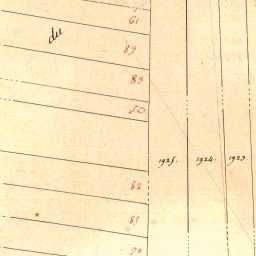 61
du
89
83
50
1925.
1924.
1923.
82
81